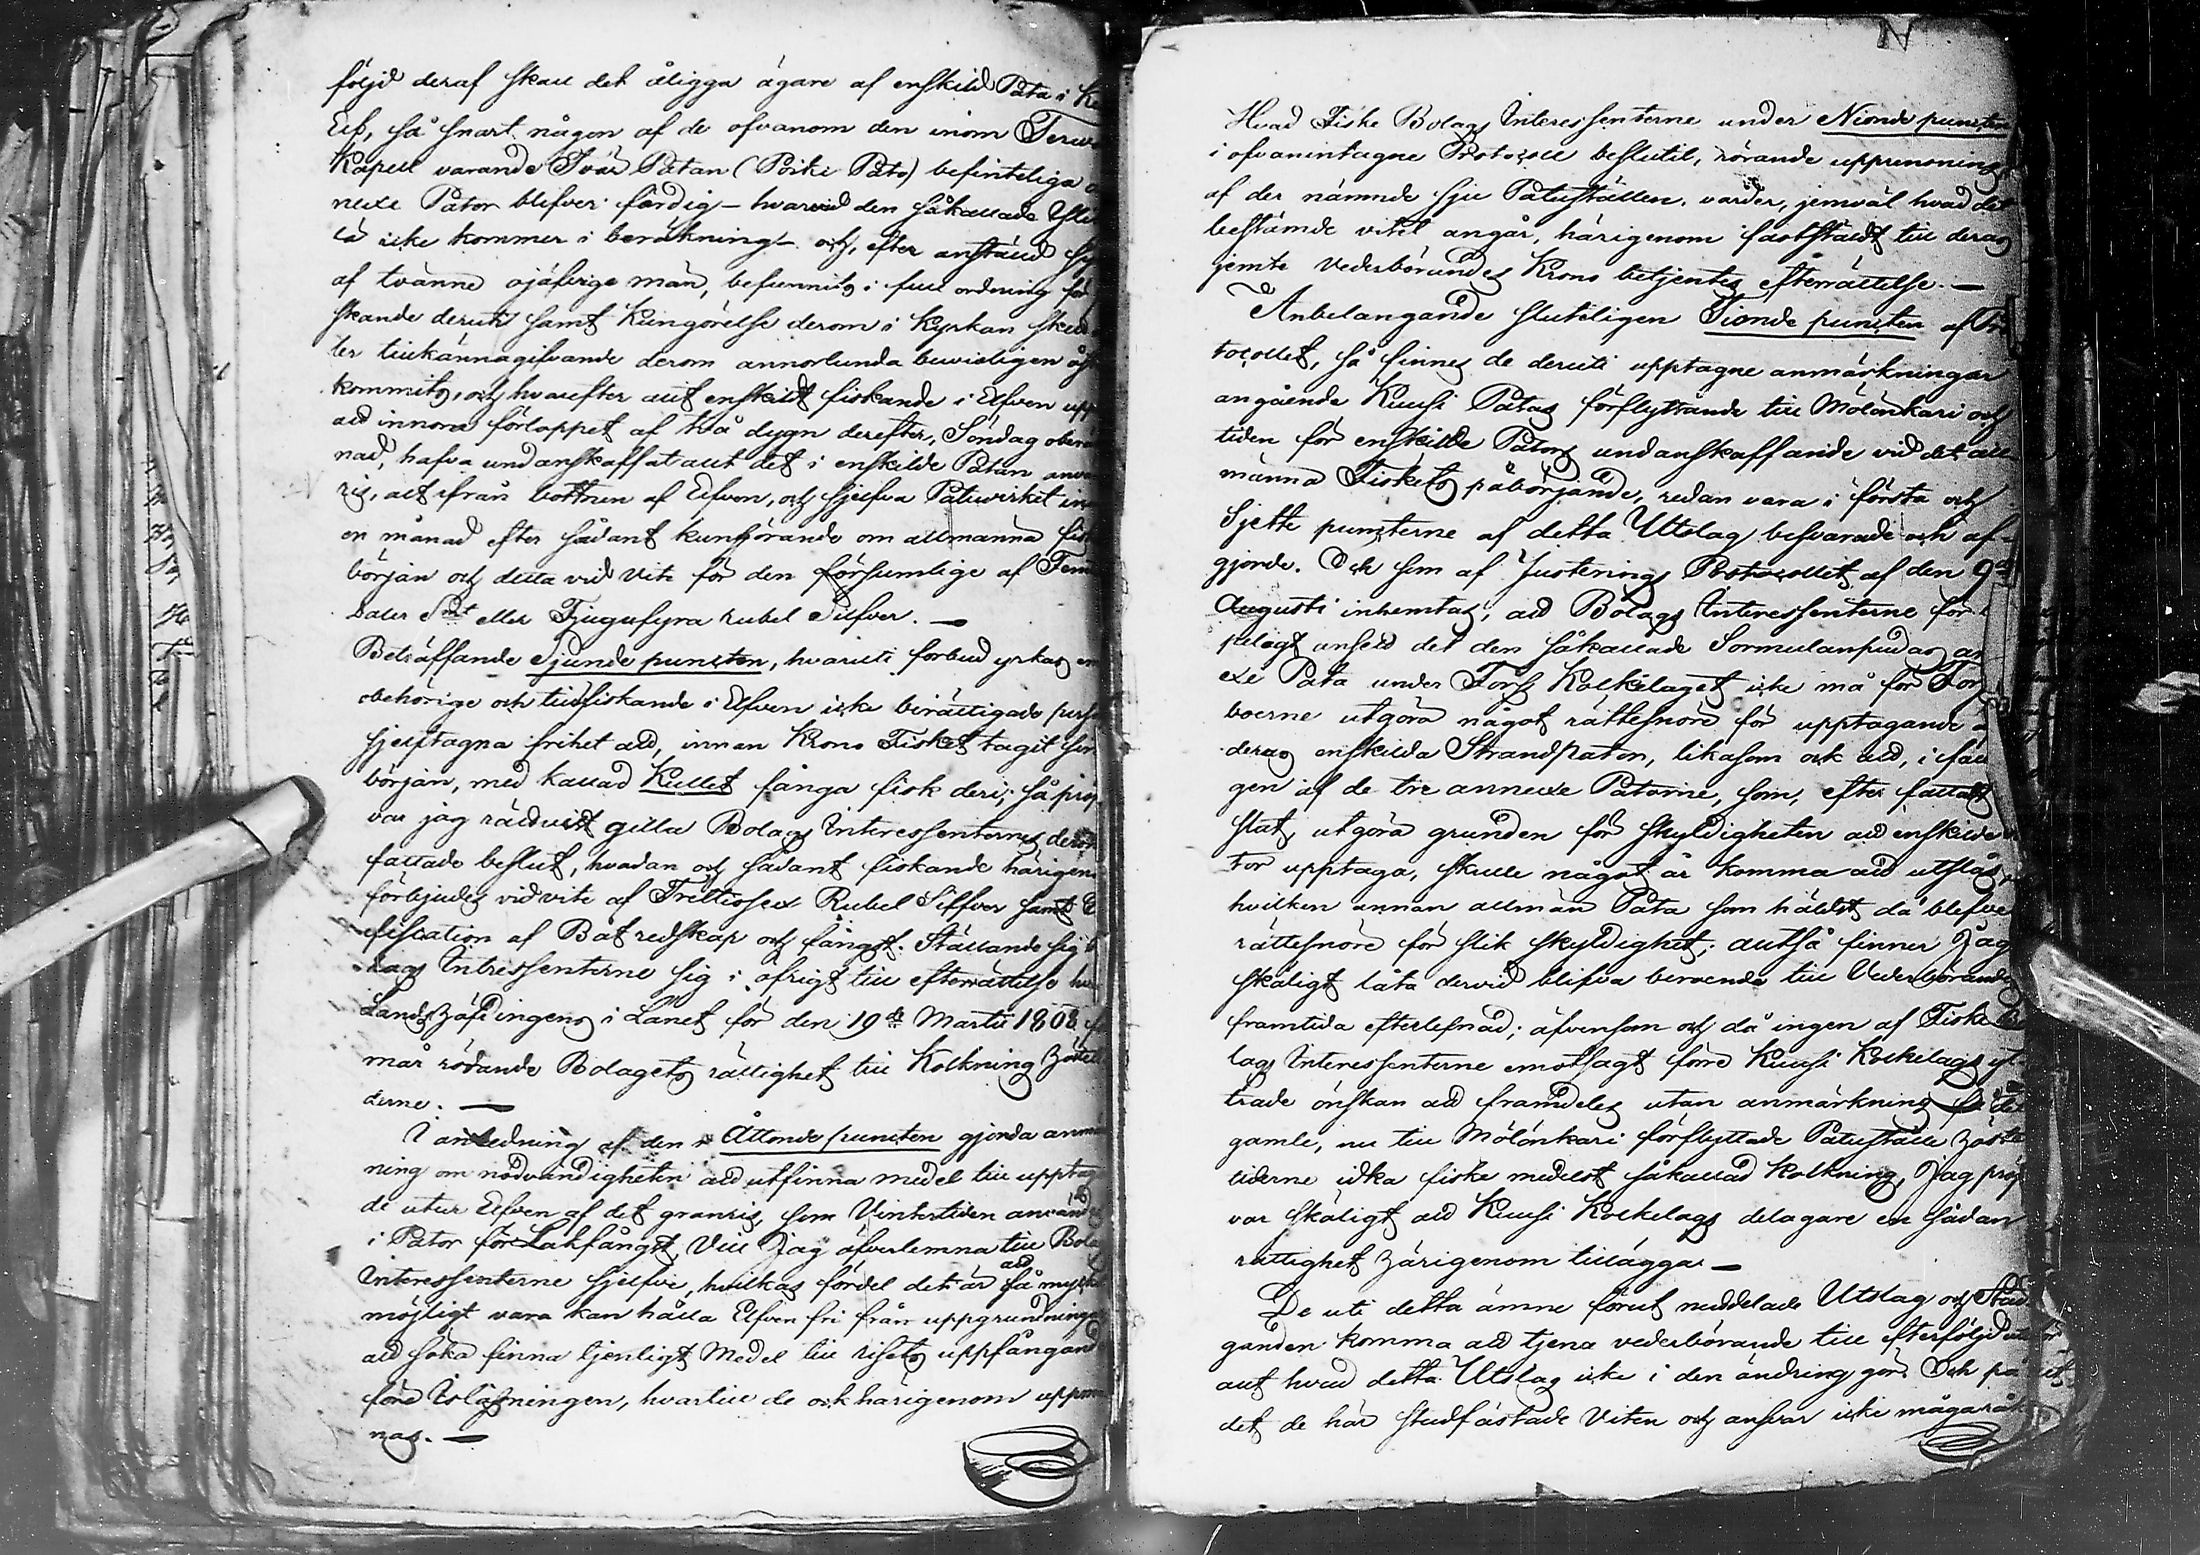 följd deraf skall det åligga ägare af enskild Pata i Ke
Elf, så snart någon af de ofvanom den inom Terwo
Kapell varande Tvär Patan (Poiki Pato) befinteliga a
nexe Pator blifver färdig – hvarvid den såkallade
la icke kommer i beräkning – och, efter anstäld sy
af tvänne ojäfvige män, befunnits i full ordning för
skande deruti samt Kungörelse derom i Kyrkan sked
ter tillkännagifvande derom annorlunda bevisligen åst
kommits, och hvarefter allt enskildt fiskande i Elfven upp
att innom förloppet af två dygn derefter, Söndag oberä
nad, hafva undanskaffat allt det i enskilde Patan anvä
ris, allt ifrån bottnen af Elfven, och sjelfva Patuvirket in
en månad efter sådant kungörande om allmänna fisk
början och detta vid vite för den försumlige af Fem
Daler Smt eller Tjugufyra rubel Silfver. —
Beträffande Sjunde puncten, hvaruti förbud yrkas em
obehörige och till fiskande i Elfven icke berättigade pers
sjelftagna frihet att, innan Krono Fisket tagit sin
början, med kallad Kullet fånga fisk deri; så pröf
var jag rättvist gilla Bolags Interessenternes derom
fattade beslut, hvadan och sådant fiskande härigen
förbjudes vid vite af Trettiosex Rubel Silfver samt C
fiscation af Båt redskap och fångst. Ställande sig B
lags Intressenterne sig i öfrigt till efterrättelse hv
Landshöfdingens i Länet för den 19de Martii 1808
mår rörande Bolagets rättighet till Kolkning Höste
derne. —
I anledning af den i Åttonde puncten gjorda anm
ning om nödvändigheten att utfinna medel till upptag
de utur Elfven af det granris, som Vintertiden använd
i Pator för Lakfångst, vill Jag öfverlemna till Bola
Interessenterne sjelfve, hvilkas fördel det är att så myck
möjligt vara kan hålla Elfven fri från uppgrundninga
att söka finna tjenligt Medel till risets uppfångand
före Islägningen, hvartill de ock härigenom uppma
nas. —
Hvad Fiske Bolags Interessenterne under Nionde puncten
i ofvanintagne Protocoll beslutit, rörande upprensning
af der nämnde sju Patuställen, varder, jemväl hvad det
bestämde vitet angår, härigenom fastställdt till deras
jemte Vederbörandes Krono betjentes efterrättelse. —
Anbelangande sluteligen Tionde puncten af Pro
tocollet, så finnes de deruti upptagne anmärkningar
angående Kuusi Patas förflyttande till Mölönkari och
tiden för enskilde Pators undanskaffande vid det all
männa Fiskets påbörjande, redan vara i första och
Sjette puncterne af detta Utslag besvarade och af-
gjorde. Och som af Justerings Protocollet af den 9de
Augusti inhemtas, att Bolags Interessenterne för
pelagt ansedt det den såkallade Sormulanpudas an
exe Pata under Torps Kolkilaget icke må för Tor
boerne utgöra något rättesnöre för upptagande a
deras enskilda Strandpaton, likasom ock att, i fall
gen af de tre annexe Patorne, som, efter fattadt
stat, utgöra grunden för skyldigheten att enskilde
tor upptaga, skulle något år komma att utslås,
hvilken annan allmän Pata som häldst då blefve
rättesnöre för slik skyldighet; alltså finner Jag
skäligt låta dervid blifva beroende till Vederbörandes
framtida efterlefnad; äfvensom och då ingen af Fiske Bo
lags Interessenterne emotsagt före Kuusi Kolkilags yt
trade önskan att framdeles utan anmärkning få det
gamle, nu till Mölönkari förflyttade Patuställe Höste
tiderne idka fiske medelst såkallad Kolkning, Jag pröf
var skäligt att Kuusi Kolkilags delägare en sådan
rättighet härigenom tillägga. —
De uti detta ämne förut meddelade Utslag och Stad
ganden komma att tjena vederbörande till efterföljd uti
allt hvad detta Utslag icke i den ändring gör. Och på
det de här stadfästade Viten och ansvar icke måga rå